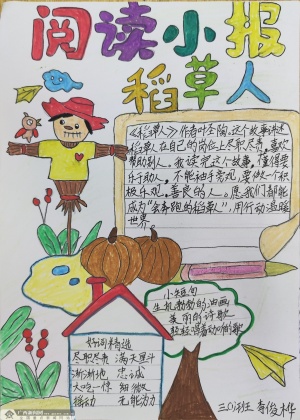 阅读小报
稻草人
《稻草人》作者叶圣陶,这个故事讲述
稻草人在自己的岗位上尽职尽责,喜欢
帮助别人。我读完这个故事,懂得要
乐于助人,不能袖手旁观,要做一个积
极乐观、善良的人。愿我们都能
成为"会奔跑的稻草人",用行动温暖
世界。
小短句
生机勃勃的油画
美丽的诗歌
好词精选
尽职尽责 满天星斗
渐渐地 忠诚
大吃一惊 细微
摇动 无能为力